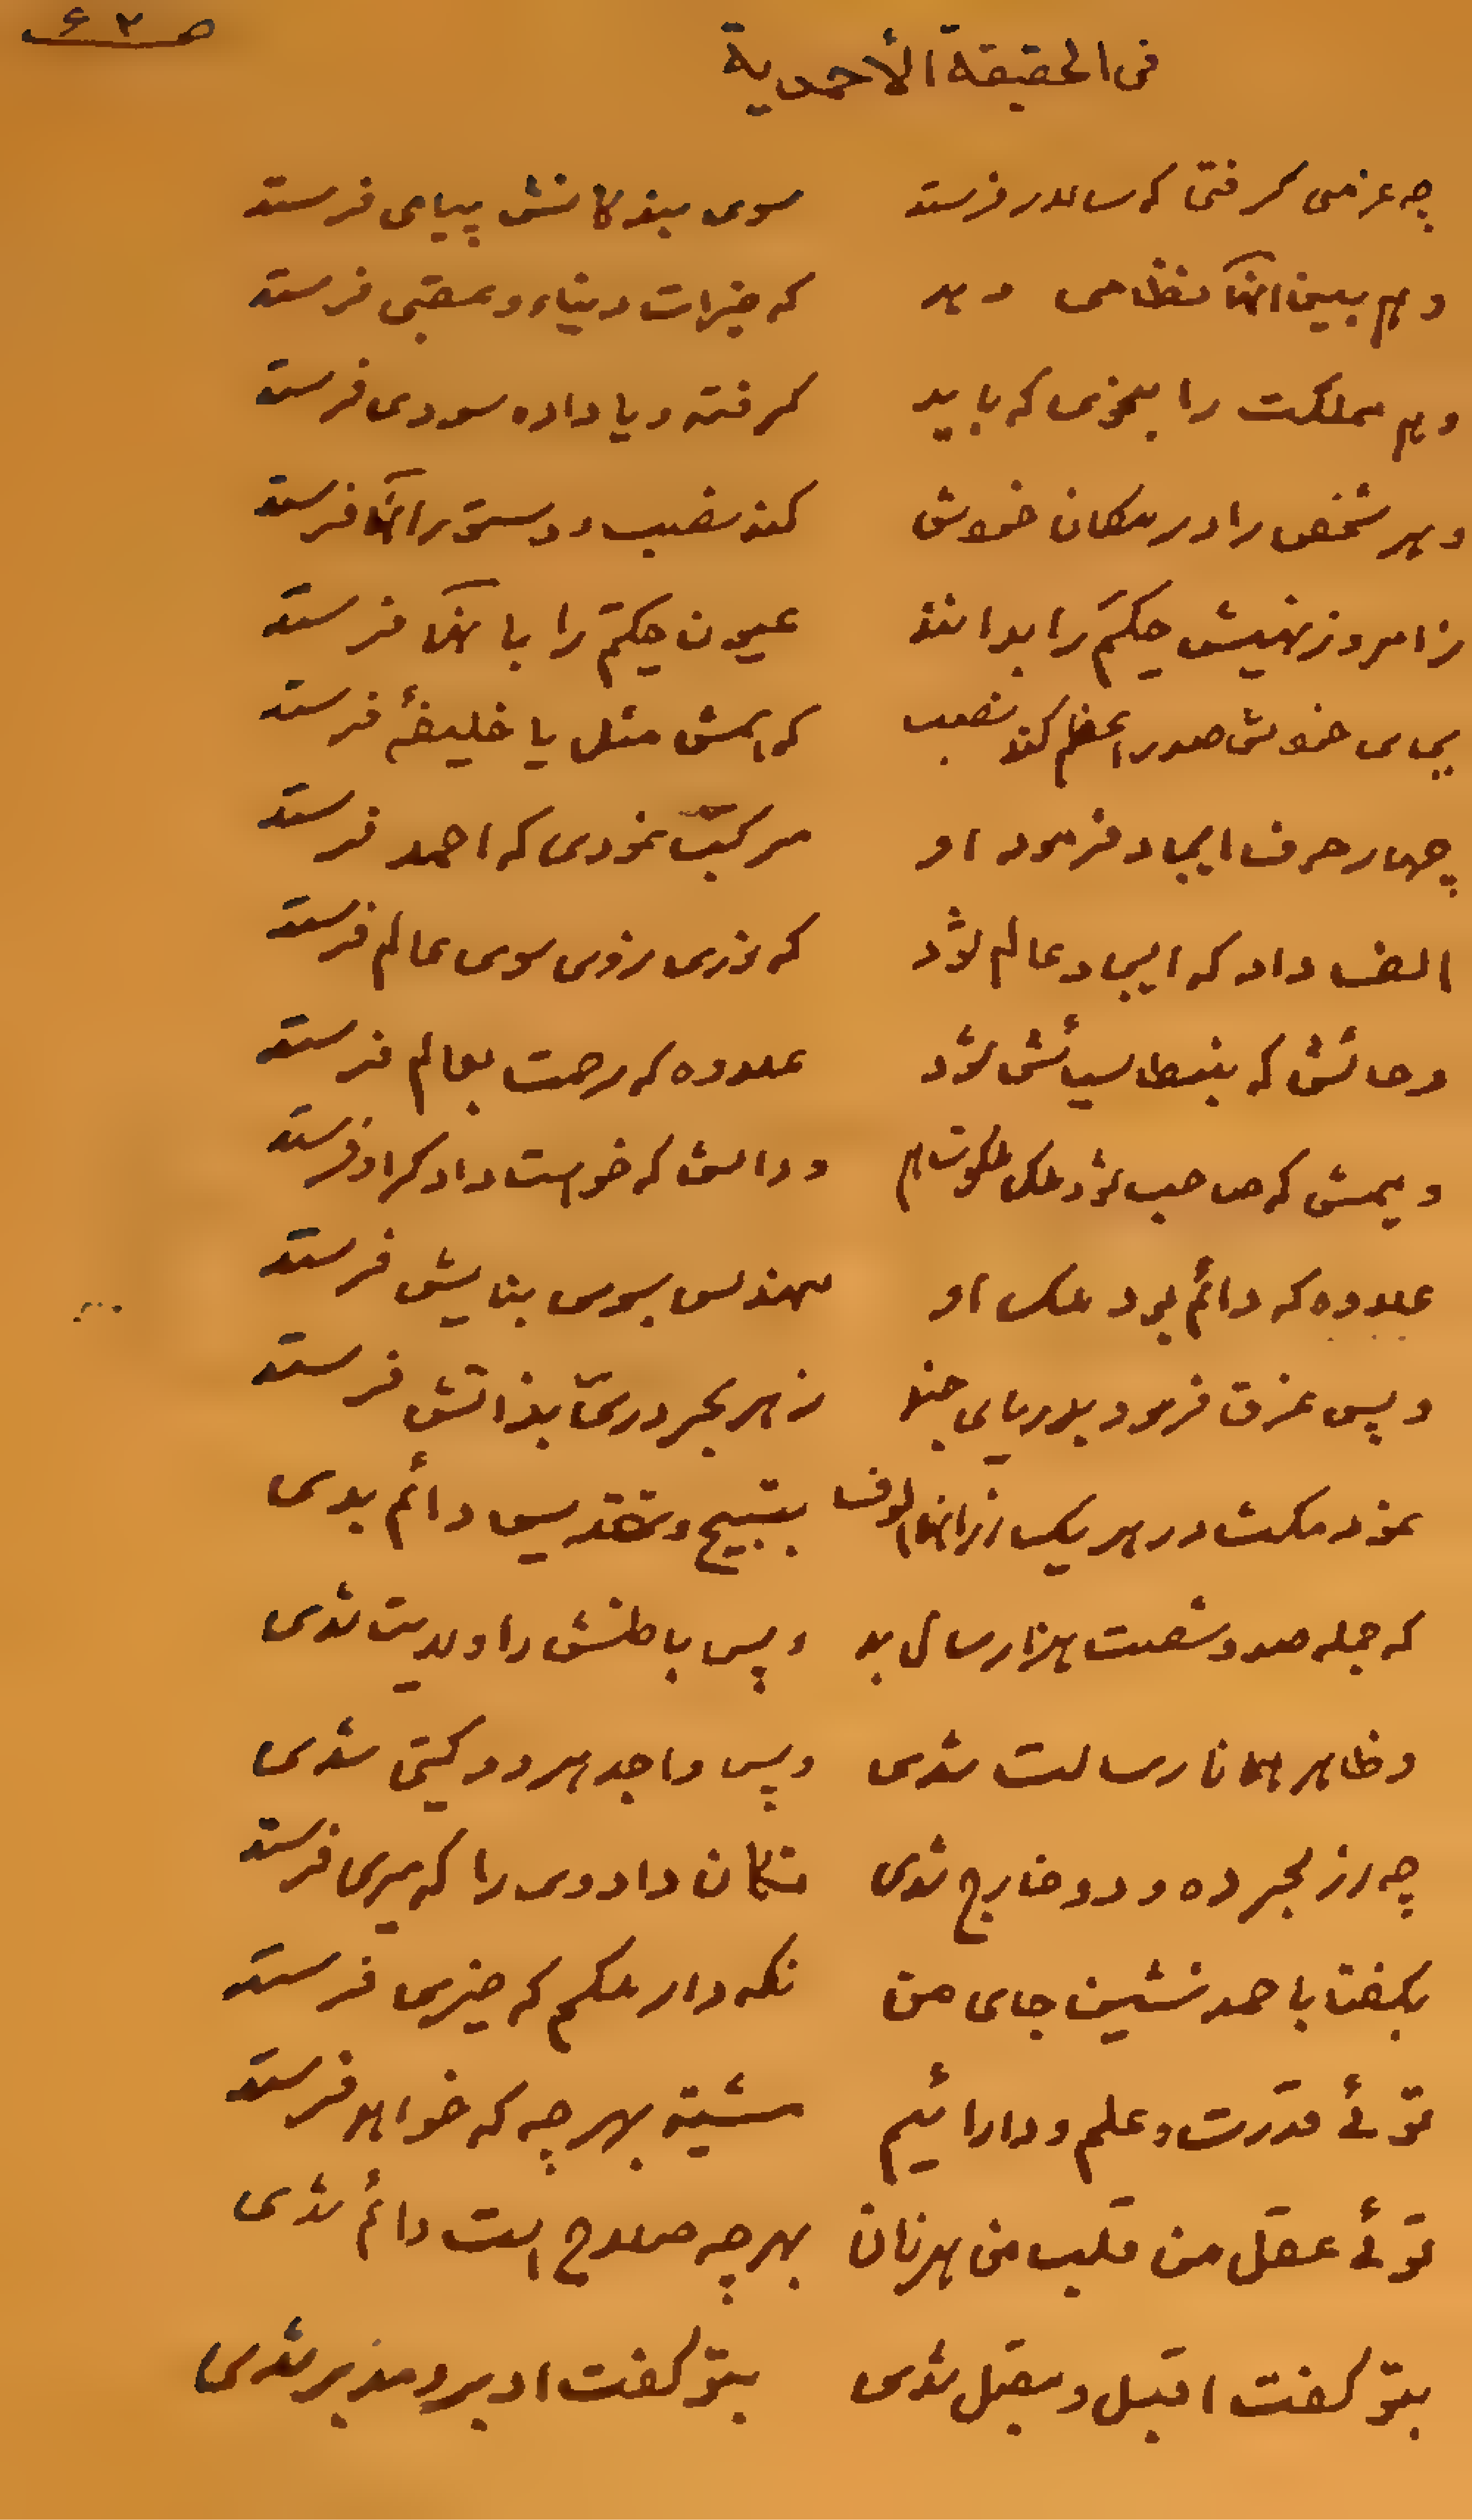 ص ٦٢
في الحقيقة الأحمدية
چه عزمی گرفتی که سالار فرستد سوی بندگانش پیامی فرستد
و هم بین آنها نظامی دهد که خیرات دنیاء و عقبی فرستد
و هم مملکت را بنحوی که باید گرفته و یا داده سودی فرستد
و هر شخص را در مکان خوش کند نصب و دستور آنها فرستد
ز امر و ز نهیش حکم را بدانند عیون حکم را بآنها فرستد
بجای خوش صدر اعظم کند نصب که اسمش مثل یا خلیفهٔ فرستد
چهار حرف ایجاد فرمود او مرکب نمودی که احمد فرستد
الف داد که ایجاد عالم شود که نوری سوی عالم فرستد
و حائش که سیأتش شود علاوه که رحمت بعالم فرستد
و میمش که صاحب شود ملک ملکوت هم و دالش که خواست داد فرستد
علاوه که دائم بود ملک او مهندس بسوی بنایش فرستد
و پس غرق فرمود بدریای چند ز هر بحر درّی بذاتش فرستد
نمود مکث در هر یک از آنها الوف بتسبیح و تقدیس دائم بدی
که جمله صد و شصت هزار سال بد و پس باطنش را ولایت شدی
و ظاهر همانا رسالت شدی و پس واجد هر دو گیتی شدی
چه از بحر ده و دو خارج شدی تکان داد وی را که میری فرستد
بگفتا باحمد نشین جای من نگه دار ملکم که چیزی فرستد
توئے قدرت و علم و دارائیم مشیة بهر چه که خواهد فرستد
توئے عقل من قلب من هر زمان بهر چه صلاح است دائم شدی
بتو گفت اقبل و مقبل شدی بتو گفت ادبر و مدبر شدی